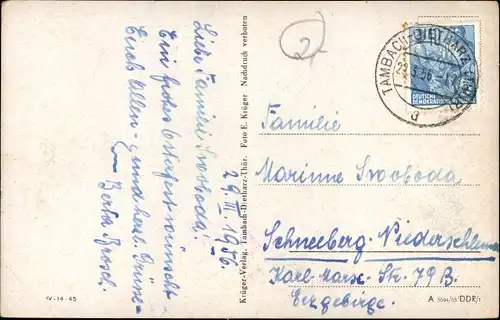 29. III. 1956.
Liebe Familie Swoboda!
Ein frohes Osterfest wünscht
Euch Allen u. grüßt herzl.
Berta
Krüger-Verlag, Tambach-Dietharz-Thür. Foto E. Krüger Nachdruck verboten
IV-14-45
2
TAMBACH-DIETHARZ
DEUTSCHE
DEMOKRATISCHE
Familie
Marinne Swoboda
Schneeberg-Niederschlema
Karl-Marx-Str. 79B.
Erzgebirge.
A 5594/55 DDR/I